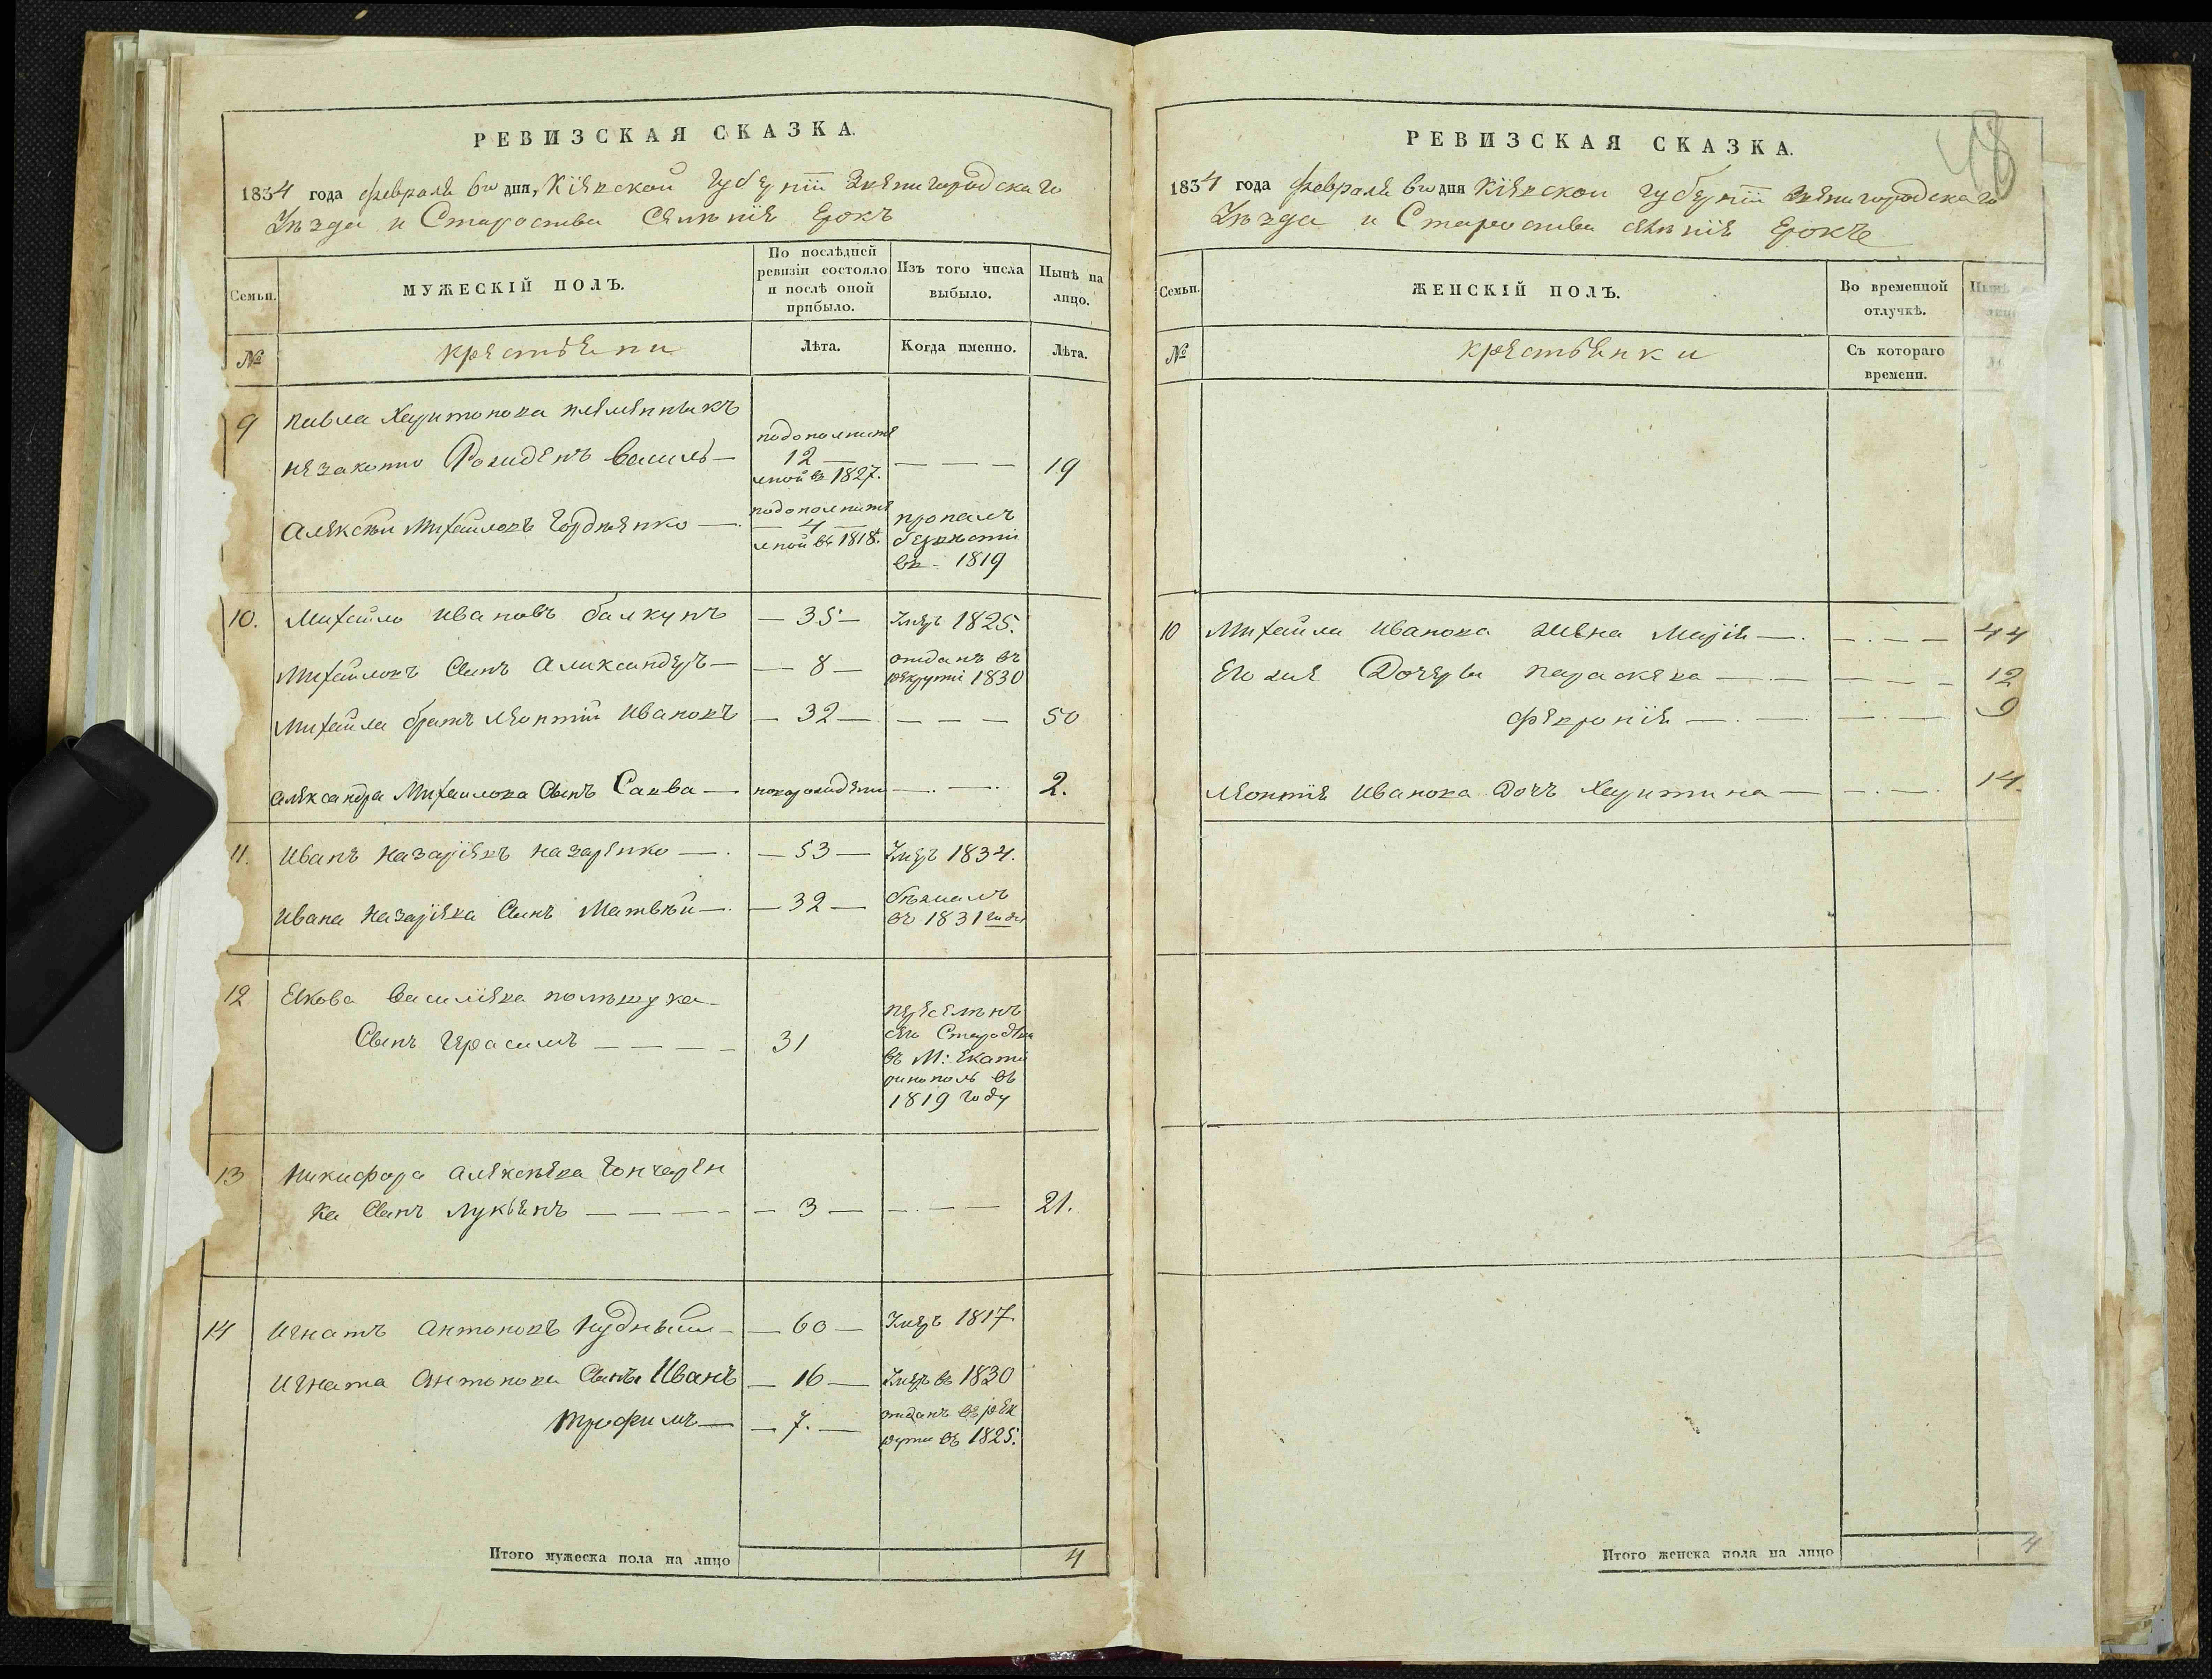 РЕВИЗСКАЯ СКАЗКА.
1834 года февраля 6го дня, Кіевской губерніи Звенигородскаго
Уѣзда и Староства Селѣнія Ерокъ
Семьи.
МУЖЕСКІЙ ПОЛЪ.
По послѣдней ревизіи состояло и послѣ оной прибыло.
Изъ того числа выбыло.
Нынѣ на лицо.
№
крестьяни
Лѣта.
Когда именно.
Лѣта.
9 Павла Харитонова племянныкъ
незаконно Рожденъ Василь — подополните 12 лной въ 1827. — — — 19
Алексѣй Михайловъ Гордѣенко — подополните — 4 — лной въ 1818. пропалъ безвѣсти въ 1819
10. Михайло Ивановъ балкунъ — 35 — Умеръ 1825.
Михайловъ Сынъ Александеръ — — 8 — отданъ въ рекрути 1830
Михайла братъ Леонтій Ивановъ — 32 — — — — 50
Александра Михайлова Сынъ Савва — новорожденн — . — . 2.
11. Иванъ Назаріевъ Назаренко — . — 53 — Умеръ 1834.
Ивана Назаріева Сынъ Матвѣй — . — 32 — бѣжалъ въ 1831 годи
12 Якова Василіева полѣщука
Сынъ Герасимъ — — — — 31 переселѣнъ
сего Староства
въ М: Екате
ринополь въ
1819 году
13 Никифора Алексѣева Гончарен
ка Сынъ Лукьянъ — — — — — 3 — — . — — 21.
14 Игнатъ Антоновъ Нудный — — 60 — Умеръ 1817
Игната Антонова Сынъ Иванъ — 16 — Умеръ въ 1830
Трофимъ — — 7. — отданъ въ рек
рути въ 1825.
Итого мужеска пола на лицо 4
48
РЕВИЗСКАЯ СКАЗКА.
1834 года февраля 6го дня Кіевской губерніи Звенигородскаго
Уѣзда и Староства селѣнія Ерокъ
Семьи.
ЖЕНСКІЙ ПОЛЪ.
Во временной отлучкѣ.
Нынѣ
№
крестьянки
Съ котораго времени.
10 Михайла Иванова жена Марія — . — . — — 44
Его же Дочери Параскева — — — — — 12
Февронія — . — — . — . 9
Леонтія Иванова Дочъ Харитина — — . — . 14.
Итого женска пола на лицо 4